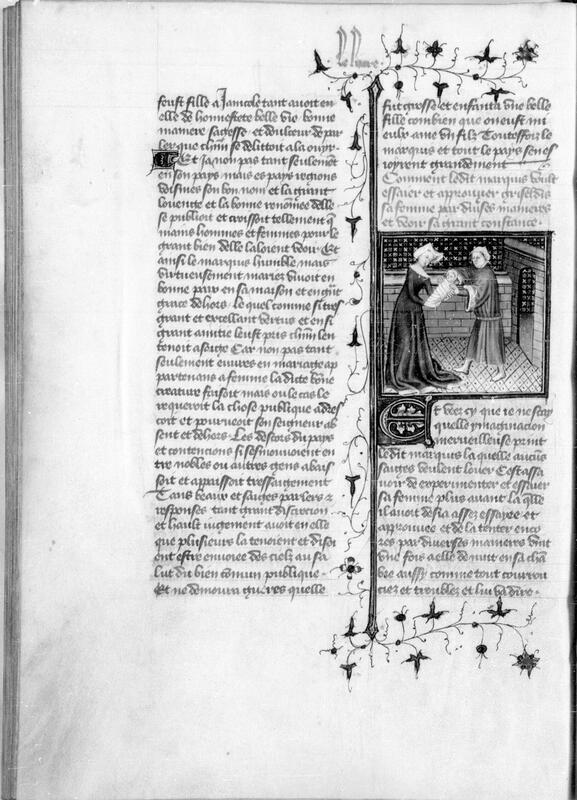 Le livre
feust fille a Janicole tant avoit en
elle de honnestete belle vie bonne
maniere sagesse et doulceur de par
ler que chun se delittoit a la ouyr.
Et ja non pas tant seulement
en son pays mais es pays regions
voisines son bon nom et la grant
louenge et la bonne renomee delle
se publioit et croissoit tellement q
mains hommes et femmes pour le
grant bien delle laloient veoir. Et
ainsi le marquis humble mais
virtueusement mariez vivoit en
bonne paix en sa maison et en gnt
grace dehors. le quel comme si tres
grant et excellant vertus et en si
grant amitie leust pris chun len
tenoit a saige. Car non pas tant
seulement euvres en mariage ap
partenans a femme la dicte bone
creature faisoit mais ou le cas le
requeroit la chose publique adres
coit et pourveoit son seigneur ab
sent et dehors. Les descors du pays
et contencions si se smouvoient en
tre nobles ou autres gens abais
soit et appaisoit tressaigement
Tans beaux et saiges parlers &
responses tant grant discrecion
et hault jugement avoit en elle
que plusieurs la tenoient et disoi
ent estre envoiee des cielz au sa
lut du bien comun publique.
Et ne demoura gueres quelle
fut grosse et enfanta une belle
fille combien que on eust mi
eulx ame un filz Toutesfoiz le
marquis et tout le pays sen es
joyrent grandement
Comment ledit marquis voult
essaier et approuver griseldis
sa femme par diverses manieres
et veoir sa grant constance.
Et veez cy que je ne scay
quelle ymaginacion
merveilleuse print
ledit marquis la quelle aucuns
saiges veulent louer Cest assa
voir de experimenter et essaier
sa femme plus avant la qlle
il avoit desia assez essayee et
approuvee et de la tenter enco
res par diverses manieres vint
une fois a elle de nuit en sa cham
bre aussy comme tout courrou
ciez et troublez et lui va dire.